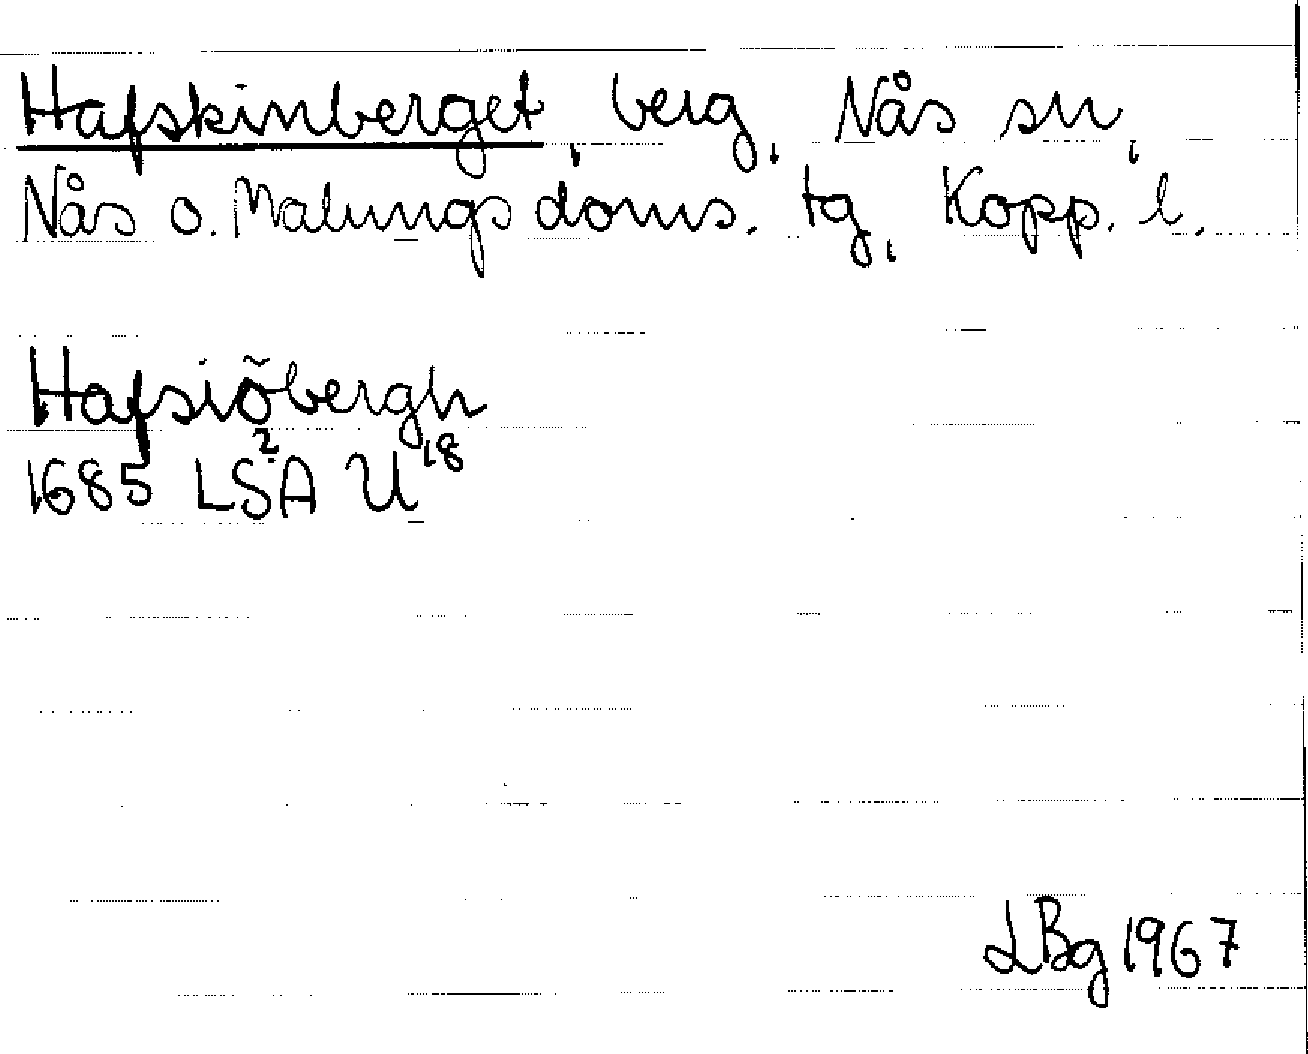 Hafskinberget, berg, Nås sn,
Nås o. Malungs doms. tg, Kopp. l.
Hafsiõbergh
?
1685 LSA U18
LBg 1967